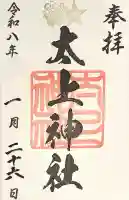 奉拝
太上神社
令和八年
一月二十六日